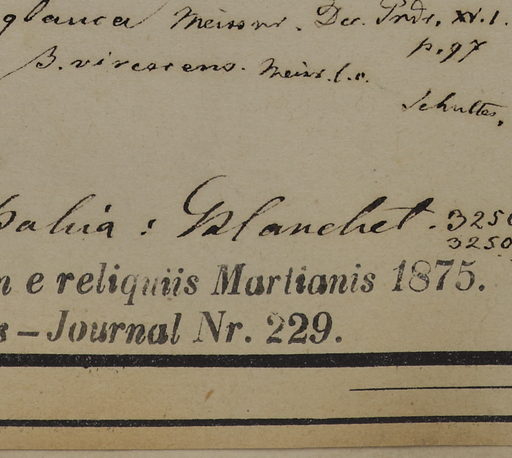 glauca Meissn. Dec. Prdr. XV. 1.
p. 97
β. virescens. Meis. l. c.
Schultes.
Bahia: Blanchet. 3250
3250
n e reliquiis Martianis 1875.
s – Journal Nr. 229.